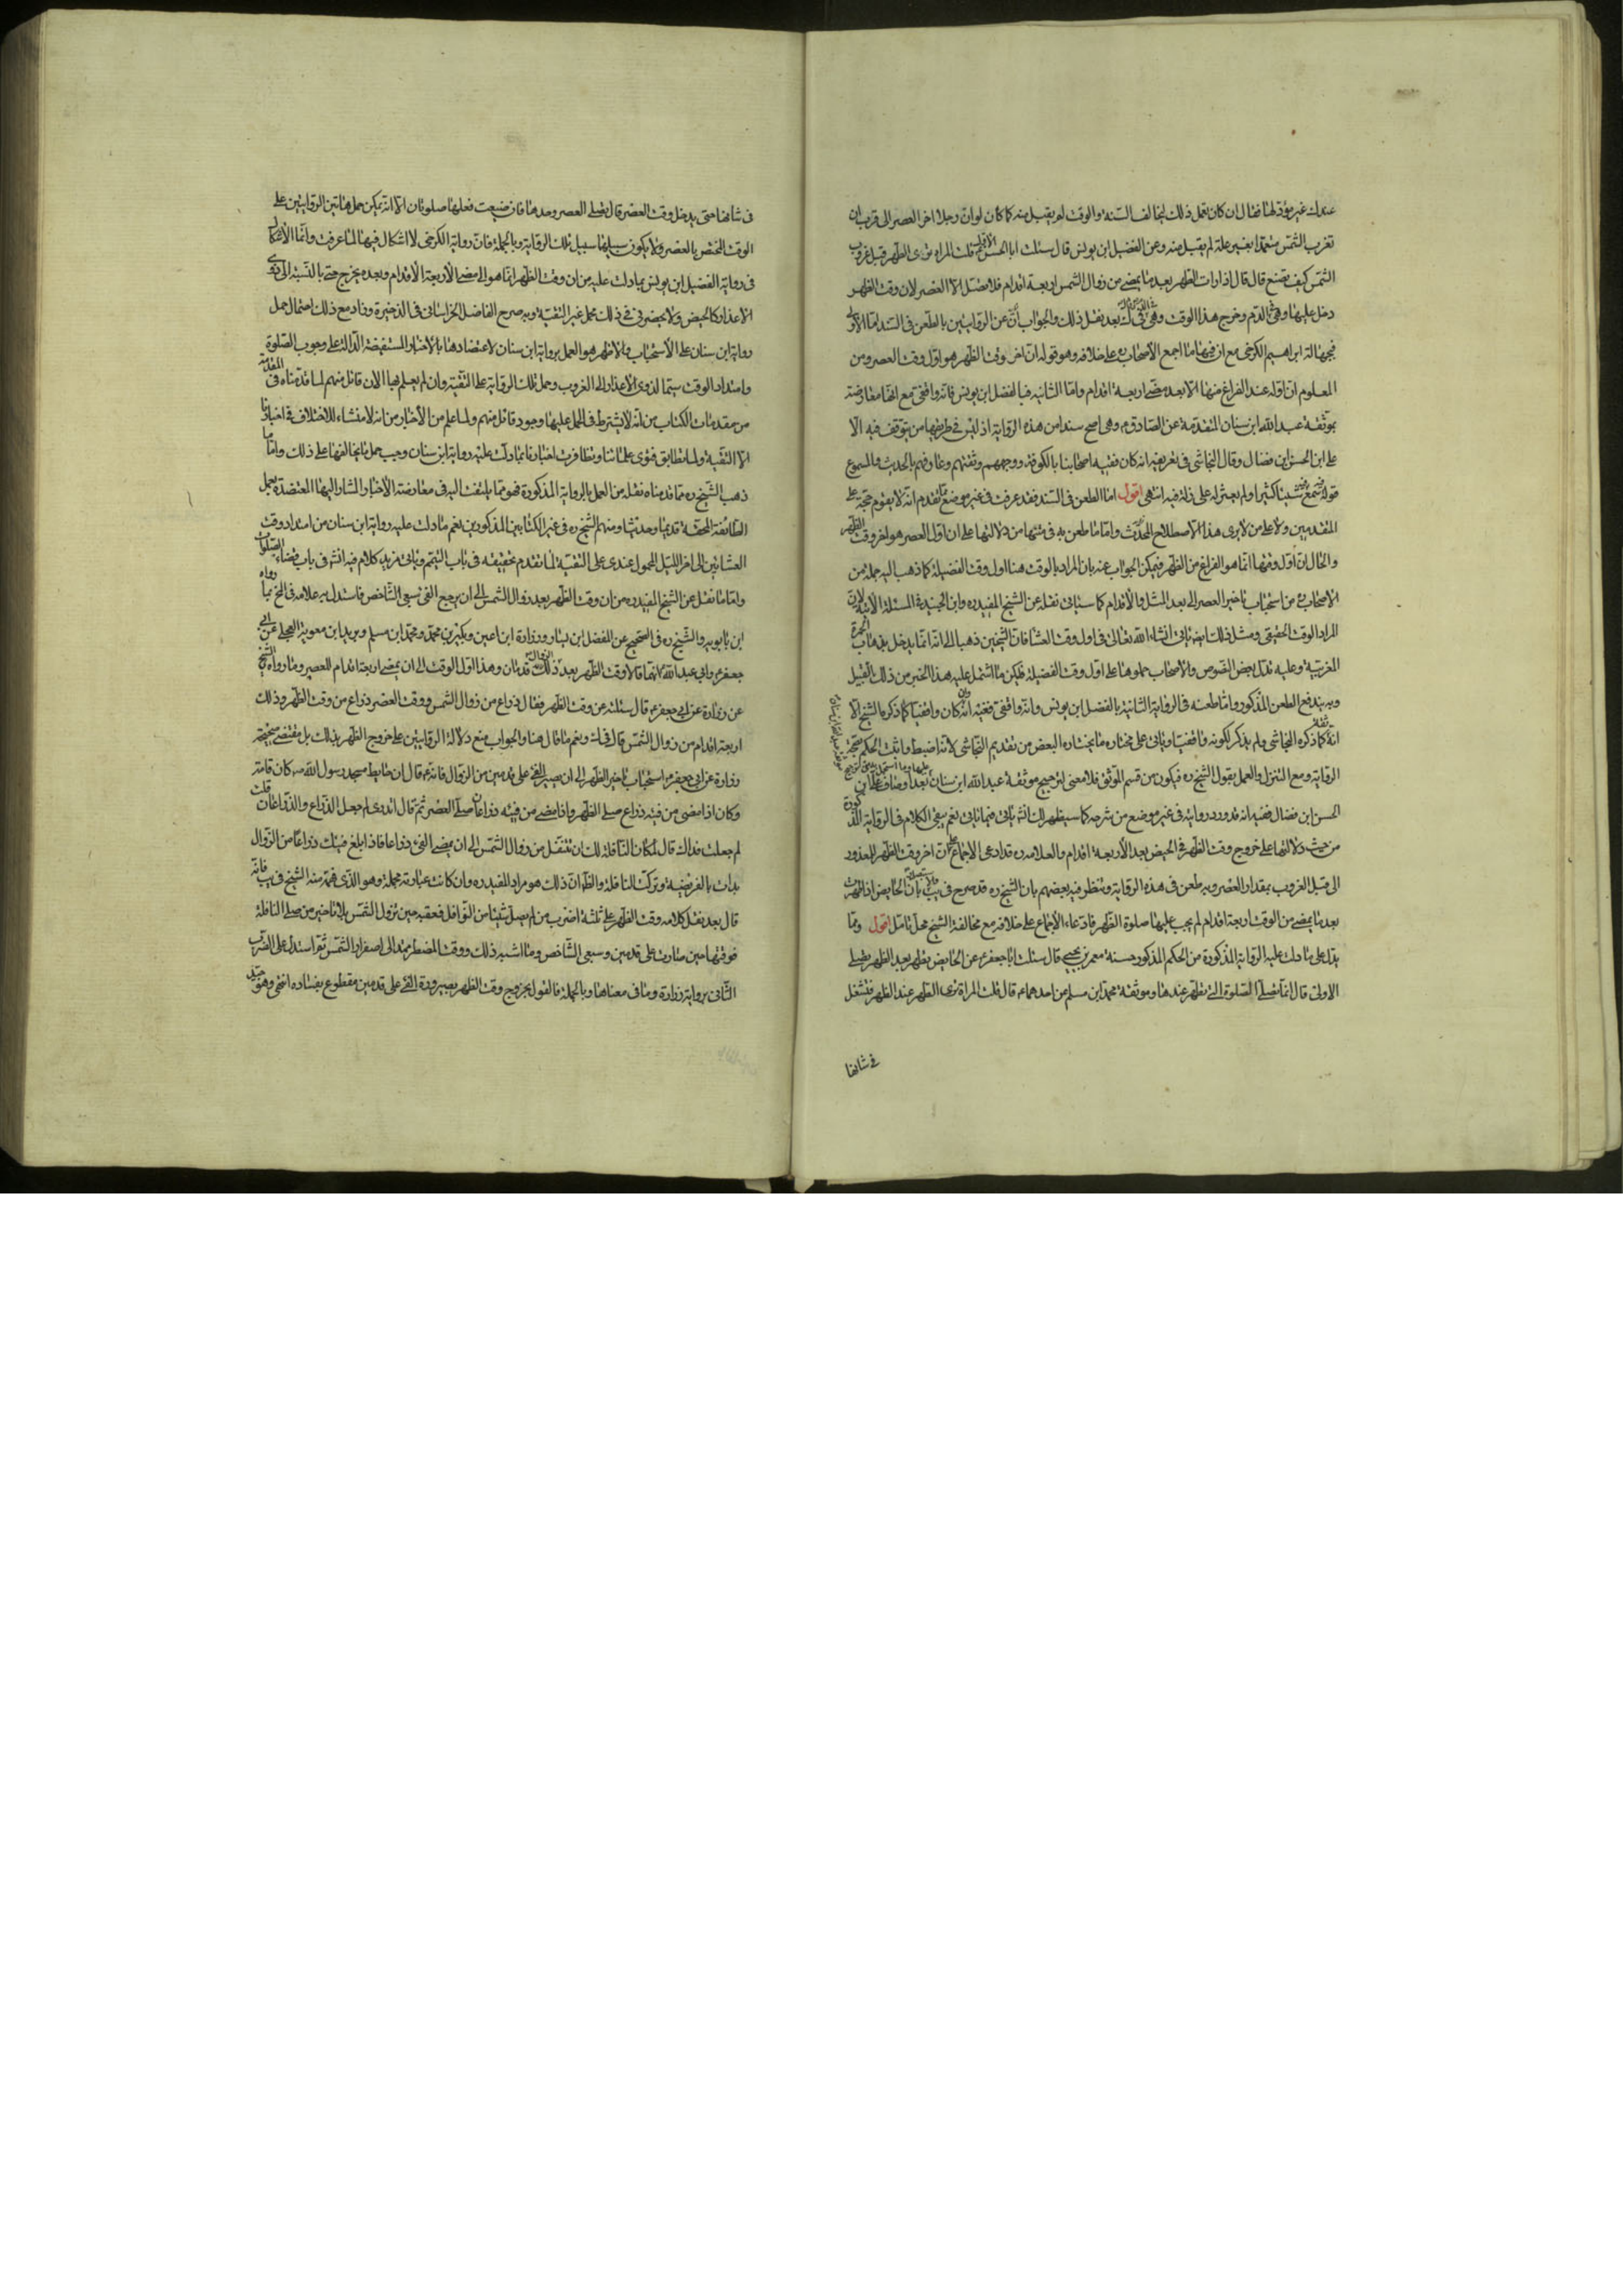 عندك غير مؤد لها فقال ان كان تعمل ذلك ليخالف السنة والوقت لم يقبل منه كما كان لو ان رجلا اخر العصر الى قرب ان
تغرب الشمس متعمدا بغير علة لم يقبل منه وعن الفضيل ابن يونس قال سئلت ابا الحسن الاول قلت المراة ترى الطهر قبل غروب
الشمس كيف تصنع قال قال اذا رات الطهر بعد ما يمضى من زوال الشمس اربعة اقدام فلا تصل الا العصر لان وقت الظهر
دخل عليها وهى فى الدم وخرج هذا الوقت وهى فى بعد نقل ذلك والجواب عن الروايتين بالطعن فى السند اما الاولى
فبجهالة ابراهيم الكرخى مع ان فيها ما اجمع الاصحاب على خلافه وهو قوله ان اخر وقت الظهر هو اول وقت العصر ومن
المعلوم ان اوله عند الفراغ منها لا بعد مضى اربعة اقدام واما الثانية فبالفضل ابن يونس فانه واقفى مع انها معارضة
بموثقة عبد الله ابن سنان المتقدمة عن الصادق وهى اصح سندا من هذه الرواية اذ ليس فى طريقها من يتوقف فيه الا
على ابن الحسن ابن فضال وقال النجاشى فى تعريفه انه كان فقيه اصحابنا بالكوفة ووجههم وثقتهم وعارفهم بالحديث والمسموع
قوله سمع منه شيئا كثيرا ولم يعثر له على زلة فيه انتهى اقول اما الطعن فى السند فقد عرفت فى غير موضع مما تقدم انه لا يقوم حجة على
المتقدمين ولا على من لا يرى هذا الاصطلاح المحدث واما ما طعن به فى متنها من دلالتها على ان اول العصر هو اخر وقت الظهر
والحال ان اول وقتها انما هو الفراغ من الظهر فيمكن الجواب عنه بان المراد بالوقت هنا اول وقت الفضيلة كما ذهب اليه جملة من
الاصحاب من استحباب تاخير العصر الى بعد المثل والاقدام كما سياتى نقله عن الشيخ المفيد ره وابن الجنيد فى المسئلة الاتية لان
المراد الوقت الحقيقى ومثل ذلك ايضا ياتى انشاء الله تعالى فى اول وقت العشا فان الشيخين ذهبا الى انه انما يدخل بذهاب الحمرة
المغربية وعليه تدل بعض النصوص والاصحاب حملوها على اول وقت الفضيلة فليكن ما اشتمل عليه هذا الخبر من ذلك القبيل
وبه يندفع الطعن المذكور واما طعنه فى الرواية الثانية بالفضل ابن يونس وانه واقفى ففيه انه وان كان واقفيا كما ذكره الشيخ الا
انه ثقة كما ذكره النجاشى ولم يذكر كونه واقفيا وياتى على مختاره ما يختاره البعض من تقديم النجاشى لانه اضبط واثبت الحكم بصحة
الرواية ومع التنزل والعمل بقول الشيخ ره فيكون من قسم الموثق فلا معنى لترجيح موثقة عبد الله ابن سنان عليها
الحسن ابن فضال ففيه انه قد ورد روايته فى غير موضع من شرحه كما سيظهر لك انش ياتى فيما ياتى نعم يبقى الكلام فى الرواية المذكورة
من حيث دلالتها على خروج وقت الظهر فى الحيض بعد الاربعة اقدام والعلامه ره قد ادعى الاجماع على ان اخر وقت الظهر للمعذور
الى قبل الغروب بمقدار العصر وبه طعن فى هذه الرواية وتنظر فيه بعضهم بان الشيخ ره قد صرح فى بان الحايض اذا طهرت
بعد ما يمضى من الوقت اربعة اقدام لم يجب عليها صلوة الظهر فادعاء الاجماع على خلافه مع مخالفة الشيخ محل تامل اقول ومما
يدل على ما دلت عليه الرواية المذكورة من الحكم المذكور حسنة معمر بن يحيى قال سئلت ابا جعفر عن الحايض تطهر بعد الظهر تصلى
الاولى قال انما تصلى الصلوة التى تطهر عندها وموثقة محمد ابن مسلم عن احدهما قال قلت المراة ترى الطهر عند الظهر فتشتغل
فى شانها
فى شانها حتى يدخل وقت العصر قال تصلى العصر وحدها فان ضيعت فعليها صلوتان الا انه يمكن حمل هاتين الروايتين على
الوقت المختص بالعصر ولا يكون سبيلها سبيل تلك الرواية وبالجملة فان رواية الكرخى لا اشكال فيها لما عرفت وانما الاشكال
فى رواية الفضيل ابن يونس بما دلت عليه من ان وقت الظهر انما هو الى مضى الاربعة الاقدام وبعده يخرج حتى بالنسبة الى ذوى
الاعذار كالحيض ولا يحضرنى فى ذلك محمل غير التقية وبه صرح الفاضل الخراسانى فى الذخيرة وزاد مع ذلك احتمال حمل
رواية ابن سنان على الاستحباب والاظهر هو العمل برواية ابن سنان لاعتضادها بالاخبار المستفيضة الدالة على وجوب الصلوة
وامتداد الوقت سيما لذوى الاعذار الى الغروب وحمل تلك الرواية على التقية وان لم يعلم بها الان قائل منهم لما قدمناه فى المقدمة
من مقدمات الكتاب من انه لا يشترط فى الحمل عليها وجود قائل منهم ولما علم من الاخبار من انه لا منشاء للاختلاف فى اخبارنا
الا التقية ولما تطابق فتوى علمائنا وتظافرت اخبارنا بما دلت عليه رواية ابن سنان وجب حمل ما يخالفها على ذلك واما ما
ذهب الشيخ ره مما قدمناه نقله من العمل بالرواية المذكورة فهو مما لا يلتفت اليه فى معارضة الاخبار المشار اليها المعتضدة بعمل
الطائفة المحقة قديما وحديثا ومنهم الشيخ ره فى غير الكتابين المذكورين نعم ما دلت عليه رواية ابن سنان من امتداد وقت
العشائين الى اخر الليل المحمول عندى على التقية لما تقدم تحقيقه فى باب التيمم وياتى مزيد كلام فيه انش فى باب قضاء الصلوات
واما ما نقل عن الشيخ المفيد ره من ان وقت الظهر بعد زوال الشمس الى ان يرجع الفئ سبعى الشاخص فاستدل به علامه فى لخ بما رواه
ابن بابويه والشيخ ره فى الصحيح عن الفضل ابن يسار وزرارة ابن اعين وبكير بن محمد ومحمد ابن مسلم وبريد ابن معوية العجلى عن ابى
جعفر وابى عبد الله انهما قالا وقت الظهر بعد الزوال قدمان وهذا اول الوقت الى ان يمضى اربعة اقدام للعصر وما رواه الشيخ
عن زرارة عن ابى جعفر قال سئلته عن وقت الظهر فقال ذراع من زوال الشمس ووقت العصر ذراع من وقت الظهر وذلك
اربعة اقدام من زوال الشمس قال ونعم ما قال هنا والجواب منع دلالة الروايتين على خروج الظهر بذلك بل مقتضى صحيحة
زرارة عن ابى جعفر استحباب تاخير الظهر الى ان يصير الفئ على قدمين من الزوال فانه قال ان حايط مسجد رسول الله ص كان قامة
وكان اذا مضى من فيئه ذراع صلى الظهر واذا مضى من فيئه ذراعان صلى العصر ثم قال اتدرى لم جعل الذراع والذراعان قلت
لم جعلت فداك قال لمكان النافلة لك ان تتنفل من زوال الشمس الى ان يمضى الفئ ذراعا فاذا بلغ فيئك ذراعا من الزوال
بدات بالفريضة وتركت النافلة والظ ان ذلك هو مراد المفيد ره وان كانت عبارته مجملة وهو الذى فهمه منه الشيخ فى يب فانه
قال بعد نقل كلامه وقت الظهر على ثلثة اضرب من لم يصل شيئا من النوافل فعقيبه حين تزول الشمس بلا تاخير من صلى النافلة
فوقتها حين صارت على قدمين وسبعى الشاخص وما اشبه ذلك ووقت المضطر ممتد الى اصفرار الشمس ثم استدل على الضرب
الثانى برواية زرارة وما فى معناها وبالجملة فالقول بخروج وقت الظهر بصيرورة الفئ على قدمين مقطوع بفساده انتهى وهو جيد